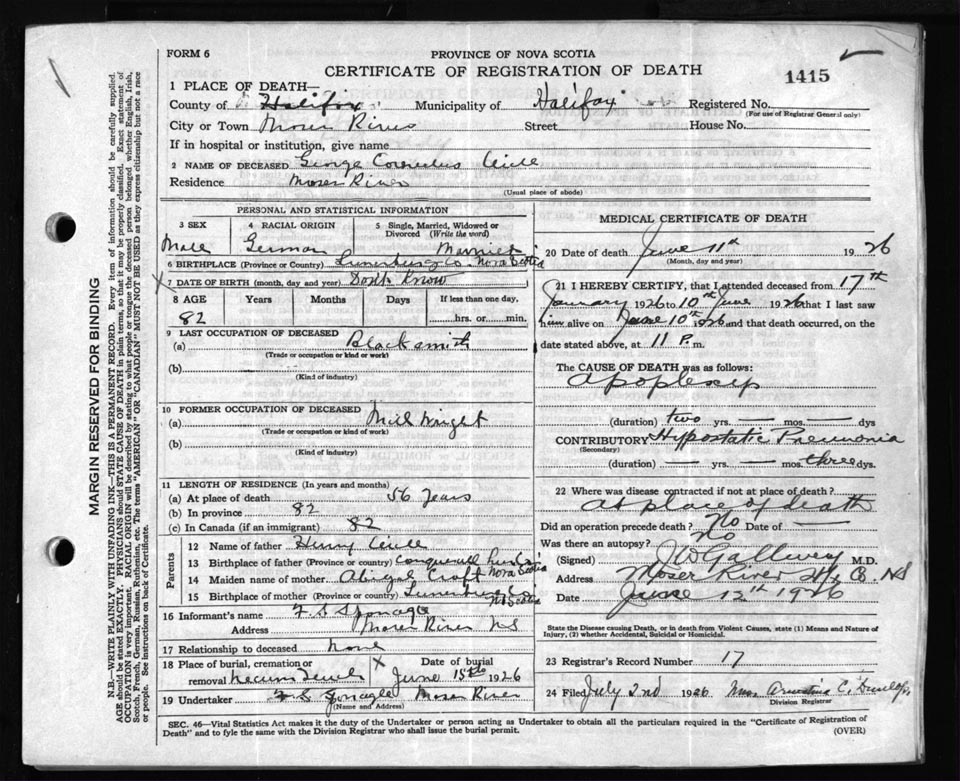 FORM 6
PROVINCE OF NOVA SCOTIA
CERTIFICATE OF REGISTRATION OF DEATH
1415
1 PLACE OF DEATH—
County of Halifax Municipality of Halifax Registered No.
(For use of Registrar General only)
City or Town Moser River Street House No.
If in hospital or institution, give name
2 NAME OF DECEASED George Cornelius
Residence Moser River
(Usual place of abode)
PERSONAL AND STATISTICAL INFORMATION
3 SEX 4 RACIAL ORIGIN 5 Single, Married, Widowed or Divorced (Write the word)
Male German Married
6 BIRTHPLACE (Province or Country) Lunenburg Co Nova Scotia
7 DATE OF BIRTH (month, day and year) Don't Know
8 AGE Years Months Days If less than one day.
82 hrs. or min.
9 LAST OCCUPATION OF DECEASED
(a) Blacksmith
(Trade or occupation or kind of work)
(b)
(Kind of industry)
10 FORMER OCCUPATION OF DECEASED
(a) Mill Wright
(Trade or occupation or kind of work)
(b)
(Kind of industry)
11 LENGTH OF RESIDENCE (In years and months)
(a) At place of death 56 Years
(b) In province 82
(c) In Canada (if an immigrant) 82
Parents
12 Name of father Henry
13 Birthplace of father (Province or country) Conquerall Nova Scotia
14 Maiden name of mother Abigal Croft
15 Birthplace of mother (Province or country) Lunenburg Co N Scotia
16 Informant's name F. S Sponagle
Address Moser River NS
17 Relationship to deceased None
18 Place of burial, cremation or removal Necum Teuch X Date of burial June 15th 1926
19 Undertaker F. S. Sponagle Moser River
(Name and Address)
MEDICAL CERTIFICATE OF DEATH
20 Date of death June 11th 1926
(Month, day and year)
21 I HEREBY CERTIFY, that I attended deceased from 17th
January 1926 to 10th June 1926 that I last saw
him alive on June 10th 1926 and that death occurred, on
date stated above, at 11 P. m.
The CAUSE OF DEATH was as follows:
Apoplexy
(duration) two yrs. — mos. — dys
CONTRIBUTORY Hypostatic Pneumonia
(Secondary)
(duration) — yrs. — mos. three dys.
22 Where was disease contracted if not at place of death?
At place of death
Did an operation precede death? No Date of —
Was there an autopsy? No
(Signed) J W Gallwey M.D.
Address Moser River Hfx Co. NS
Date June 12th 1926
State the Disease causing Death, or in death from Violent Causes, state (1) Means and Nature of Injury, (2) whether Accidental, Suicidal or Homicidal.
23 Registrar's Record Number 17
24 Filed July 2nd 1926 Mrs
Division Registrar
SEC. 46—Vital Statistics Act makes it the duty of the Undertaker or person acting as Undertaker to obtain all the particulars required in the "Certificate of Registration of
Death" and to fyle the same with the Division Registrar who shall issue the burial permit.
(OVER)
MARGIN RESERVED FOR BINDING
N.B.—WRITE PLAINLY WITH UNFADING INK—THIS IS A PERMANENT RECORD. Every item of information should be carefully supplied.
AGE should be stated EXACTLY. PHYSICIANS should STATE CAUSE OF DEATH in plain terms, so that it may be properly classified. Exact statement of
OCCUPATION is very important. RACIAL ORIGIN will be described by stating to what people or tongue the deceased person belonged whether English, Irish,
Scotch, French, German, Russian, Ruthenian, etc. The terms "AMERICAN" OR "CANADIAN" MUST NOT BE USED as they express citizenship but not a race
or people. See instructions on back of Certificate.